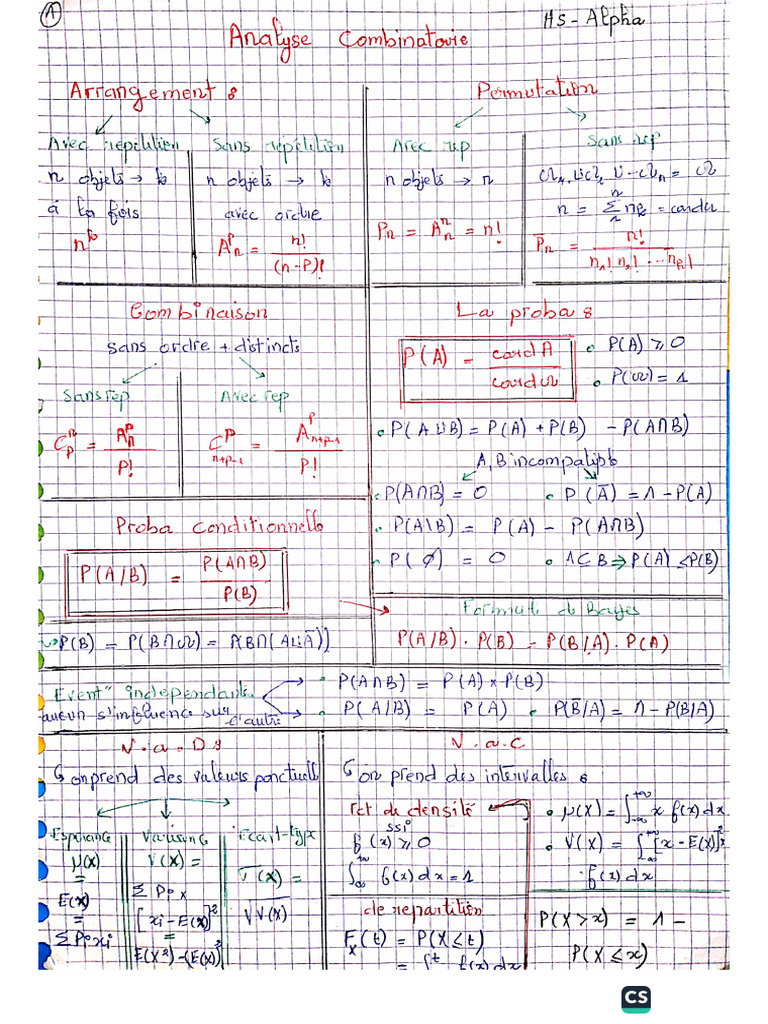 A
HS-Alpha
Analyse Combinatoire
Arrangement :
Avec répétition
n objets → k
à la fois
n^k
Sans répétition
n objets → k
avec ordre
A_n^P = n! / (n-P)!
Permutation
Avec rep
n objets → n
P_n = A_n^n = n!
Sans rep
n = Σ n_k = card ω
P̄_n = n! / n_1! n_2! ... n_p!
Combinaison
sans ordre + distincts
Sans rep
C_p^n = A_n^p / P!
Avec rep
C_{n+p-1}^P = A_{n+p-1}^P / P!
La proba :
P(A) = card A / card ω
• P(A) ≥ 0
• P(ω) = 1
• P(A ∪ B) = P(A) + P(B) - P(A∩B)
A, B incompatible
• P(A∩B) = 0
• P(Ā) = 1 - P(A)
• P(A\B) = P(A) - P(A∩B)
• P(∅) = 0
• A ⊂ B ⇒ P(A) ≤ P(B)
Proba conditionnelle
P(A/B) = P(A∩B) / P(B)
P(B) = P(B∩ω) = P(B∩(A∪Ā))
Formule de Bayes
P(A/B) . P(B) = P(B/A) . P(A)
Event" independante
aucun s'influence sur
d'autre
• P(A∩B) = P(A) × P(B)
• P(A/B) = P(A)
• P(B̄/A) = 1 - P(B/A)
V.a.D :
on prend des valeurs ponctuell
Esperance
μ(X)
=
E(X)
=
Σ Pi xi
Variance
V(X) =
Σ Pi x
[xi - E(X)]²
=
E(X²) - (E(X))²
Ecart-type
σ(X) =
√V(X)
V.a.C
on prend des intervalles :
Fct de densité
ssi
f(x) ≥ 0
∫_∞^{+∞} f(x) dx = 1
• μ(X) = ∫_{-∞}^{+∞} x f(x) dx
• V(X) = ∫_∞^{+∞} [x - E(X)]² x
. f(x) dx
de repartition
F_x(t) = P(X ≤ t)
= ∫^t f(x) dx
P(X > x) = 1 -
P(X ≤ x)
CS